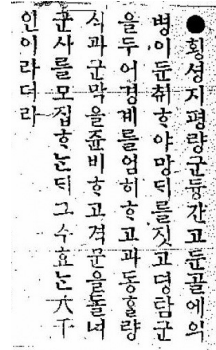 ●횡셩지평량군듕간고둔골에의
병이둔취ᄒᆞ야망ᄃᆡ를짓고뎡탐군
을두어경계를엄히ᄒᆞ고과동ᄒᆞᆯ량
식과군막을쥰비ᄒᆞ고격문을돌녀
군사를모집ᄒᆞᄂᆞᆫᄃᆡ그수효ᄂᆞᆫ六千
인이라더라